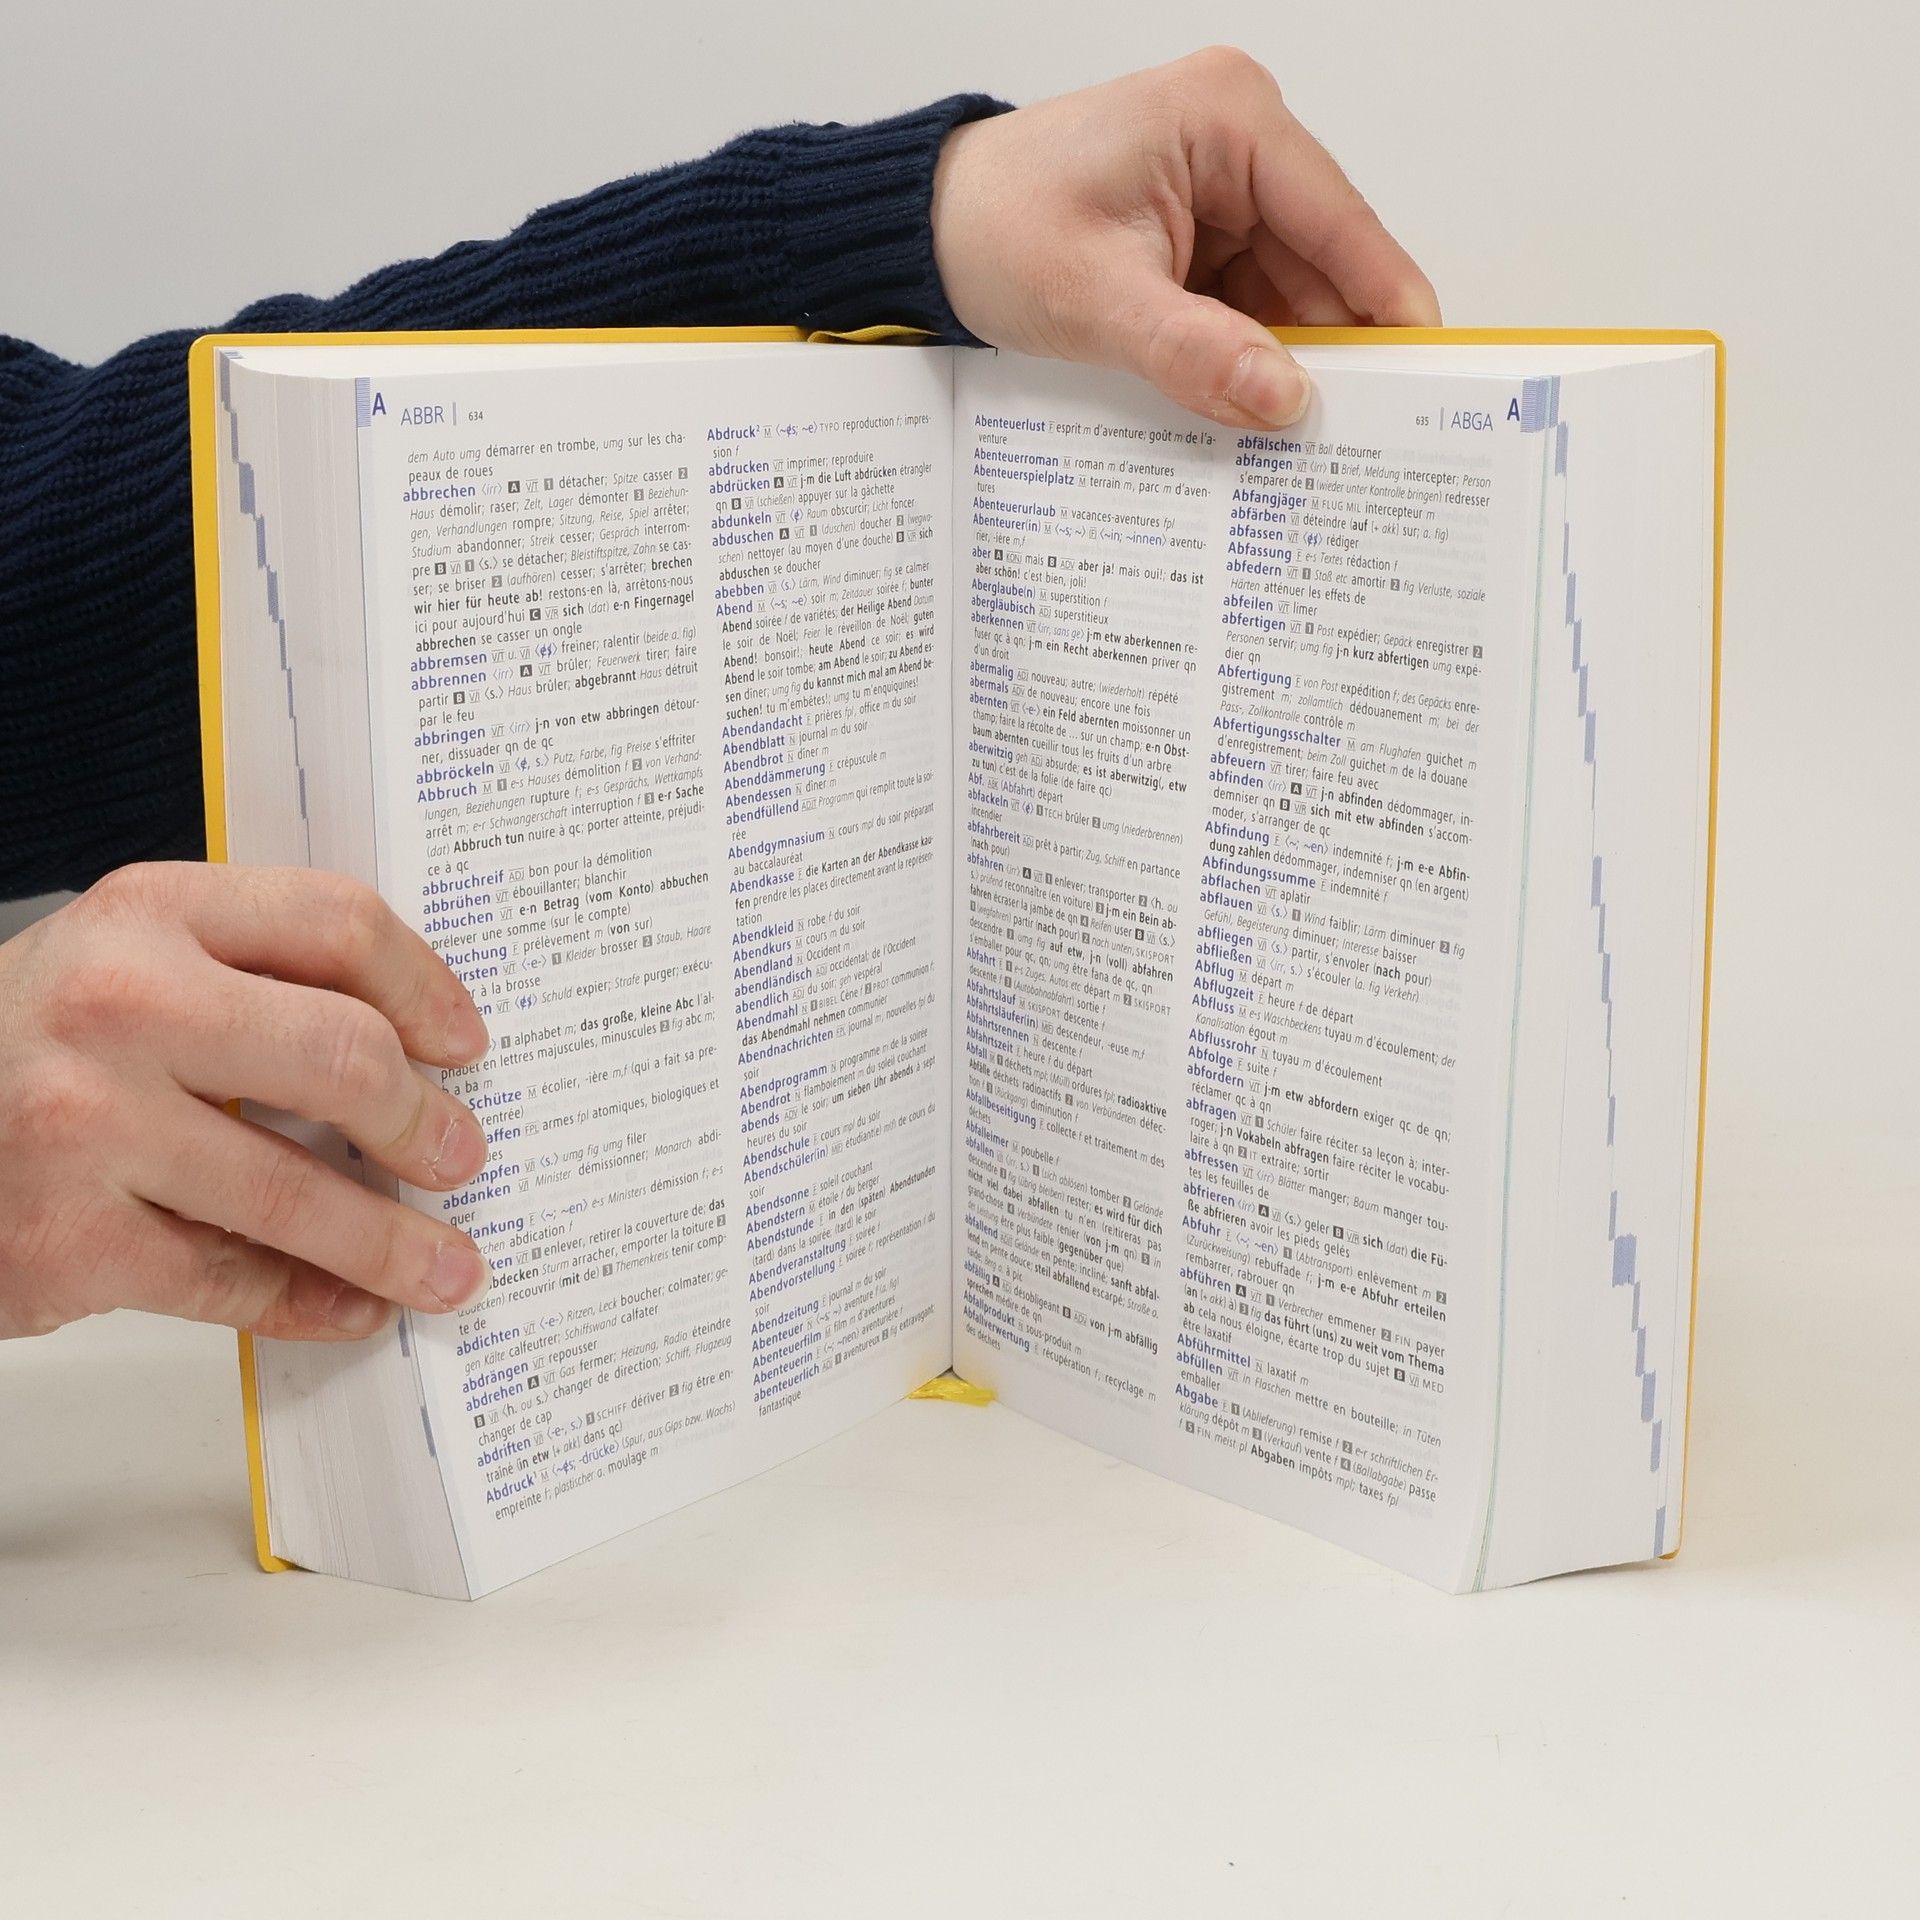 A ABBR | 634
dem Auto umg démarrer en trombe, umg sur les cha-
peaux de roues
abbrechen ⟨irr⟩ A V/T 1 détacher; Spitze casser 2
Haus démolir; raser; Zelt, Lager démonter 3 Beziehun-
gen, Verhandlungen rompre; Sitzung, Reise, Spiel arrêter;
Studium abandonner; Streik cesser; Gespräch interrom-
pre B V/I 1 ⟨s.⟩ se détacher; Bleistiftspitze, Zahn se cas-
ser; se briser 2 (aufhören) cesser; s'arrêter; brechen
wir hier für heute ab! restons-en là, arrêtons-nous
ici pour aujourd'hui C V/R sich (dat) e-n Fingernagel
abbrechen se casser un ongle
abbremsen V/T u. V/I ⟨¢$⟩ freiner; ralentir (beide a. fig)
abbrennen ⟨irr⟩ A V/T brûler; Feuerwerk tirer; faire
partir B V/I ⟨s.⟩ Haus brûler; abgebrannt Haus détruit
par le feu
abbringen V/T ⟨irr⟩ j-n von etw abbringen détour-
ner, dissuader qn de qc
abbröckeln V/I ⟨¢, s.⟩ Putz, Farbe, fig Preise s'effriter
Abbruch M 1 e-s Hauses démolition f 2 von Verhand-
lungen, Beziehungen rupture f; e-s Gesprächs, Wettkampfs
arrêt m; e-r Schwangerschaft interruption f 3 e-r Sache
(dat) Abbruch tun nuire à qc; porter atteinte, préjudi-
ce à qc
abbruchreif ADJ bon pour la démolition
abbrühen V/T ébouillanter; blanchir
abbuchen V/T e-n Betrag (vom Konto) abbuchen
prélever une somme (sur le compte)
buchung F prélèvement m (von sur)
ürsten V/T ⟨-e-⟩ 1 Kleider brosser 2 Staub, Haare
r à la brosse
en V/T ⟨¢$⟩ Schuld expier; Strafe purger; exécu-
1 alphabet m; das große, kleine Abc l'al-
phabet en lettres majuscules, minuscules 2 fig abc m;
b a ba m
Schütze M écolier, -ière m,f (qui a fait sa pre-
rentrée)
affen FPL armes fpl atomiques, biologiques et
ues
mpfen V/I ⟨s.⟩ umg fig umg filer
abdanken V/I Minister démissionner; Monarch abdi-
quer
dankung F ⟨~; ~en⟩ e-s Ministers démission f; e-s
rchen abdication f
ken V/T 1 enlever, retirer la couverture de; das
bdecken Sturm arracher, emporter la toiture 2
(zudecken) recouvrir (mit de) 3 Themenkreis tenir comp-
te de
abdichten V/T ⟨-e-⟩ Ritzen, Leck boucher; colmater; ge-
gen Kälte calfeutrer; Schiffswand calfater
abdrängen V/T repousser
abdrehen A V/T Gas fermer; Heizung, Radio éteindre
B V/I ⟨h. ou s.⟩ changer de direction; Schiff, Flugzeug
changer de cap
abdriften V/I ⟨-e-, s.⟩ 1 SCHIFF dériver 2 fig être en-
traîné (in etw [+ akk] dans qc)
Abdruck¹ M ⟨~¢s; -drücke⟩ (Spur, aus Gips bzw. Wachs)
empreinte f; plastischer a. moulage m
Abdruck² M ⟨~¢s; ~e⟩ TYPO reproduction f; impres-
sion f
abdrucken V/T imprimer; reproduire
abdrücken A V/T j-m die Luft abdrücken étrangler
qn B V/I (schießen) appuyer sur la gâchette
abdunkeln V/T ⟨¢⟩ Raum obscurcir; Licht foncer
abduschen A V/T 1 (duschen) doucher 2 (wegwa-
schen) nettoyer (au moyen d'une douche) B V/R sich
abduschen se doucher
abebben V/I ⟨s.⟩ Lärm, Wind diminuer; fig se calmer
Abend M ⟨~s; ~e⟩ soir m; Zeitdauer soirée f; bunter
Abend soirée f de variétés; der Heilige Abend Datum
le soir de Noël; Feier le réveillon de Noël; guten
Abend! bonsoir!; heute Abend ce soir; es wird
Abend le soir tombe; am Abend le soir; zu Abend es-
sen dîner; umg fig du kannst mich mal am Abend be-
suchen! tu m'embêtes!; umg tu m'enquiquines!
Abendandacht F prières fpl, office m du soir
Abendblatt N journal m du soir
Abendbrot N dîner m
Abenddämmerung F crépuscule m
Abendessen N dîner m
abendfüllend ADJT Programm qui remplit toute la soi-
rée
Abendgymnasium N cours mpl du soir préparant
au baccalauréat
Abendkasse F die Karten an der Abendkasse kau-
fen prendre les places directement avant la représen-
tation
Abendkleid N robe f du soir
Abendkurs M cours m du soir
Abendland N Occident m
abendländisch ADJ occidental; de l'Occident
abendlich ADJ du soir; geh vespéral
Abendmahl N 1 BIBEL Cène f 2 PROT communion f;
das Abendmahl nehmen communier
Abendnachrichten FPL journal m, nouvelles fpl du
soir
Abendprogramm N programme m de la soirée
Abendrot N flamboiement m du soleil couchant
abends ADV le soir; um sieben Uhr abends à sept
heures du soir
Abendschule F cours mpl du soir
Abendschüler(in) M(F) étudiant(e) m(f) de cours du
soir
Abendsonne F soleil couchant
Abendstern M étoile f du berger
Abendstunde F in den (späten) Abendstunden
(tard) dans la soirée; (tard) le soir
Abendveranstaltung F soirée f
Abendvorstellung F soirée f; représentation f du
soir
Abendzeitung F journal m du soir
Abenteuer N ⟨~s; ~⟩ aventure f (a. fig)
Abenteuerfilm M film m d'aventures
Abenteuerin F ⟨~; ~nen⟩ aventurière f
abenteuerlich ADJ 1 aventureux 2 fig extravagant;
fantastique
635 | ABGA A
Abenteuerlust F esprit m d'aventure; goût m de l'a-
venture
Abenteuerroman M roman m d'aventures
Abenteuerspielplatz M terrain m, parc m d'aven-
tures
Abenteuerurlaub M vacances-aventures fpl
Abenteurer(in) M ⟨~s; ~⟩ F ⟨~in; ~innen⟩ aventu-
rier, -ière m,f
aber A KONJ mais B ADV aber ja! mais oui!; das ist
aber schön! c'est bien, joli!
Aberglaube(n) M superstition f
abergläubisch ADJ superstitieux
aberkennen V/T ⟨irr, sans ge⟩ j-m etw aberkennen re-
fuser qc à qn; j-m ein Recht aberkennen priver qn
d'un droit
abermalig ADJ nouveau; autre; (wiederholt) répété
abermals ADV de nouveau; encore une fois
abernten V/T ⟨-e-⟩ ein Feld abernten moissonner un
champ; faire la récolte de ... sur un champ; e-n Obst-
baum abernten cueillir tous les fruits d'un arbre
aberwitzig geh ADJ absurde; es ist aberwitzig(, etw
zu tun) c'est de la folie (de faire qc)
Abf. ABK (Abfahrt) départ
abfackeln V/T ⟨¢⟩ 1 TECH brûler 2 umg (niederbrennen)
incendier
abfahrbereit ADJ prêt à partir; Zug, Schiff en partance
(nach pour)
abfahren ⟨irr⟩ A V/T 1 enlever; transporter 2 ⟨h. ou
s.⟩ prüfend reconnaître (en voiture) 3 j-m ein Bein ab-
fahren écraser la jambe de qn 4 Reifen user B V/I ⟨s.⟩
1 (wegfahren) partir (nach pour) 2 nach unten, SKISPORT
descendre 3 umg fig auf etw, j-n (voll) abfahren
s'emballer pour qc, qn; umg être fana de qc, qn
Abfahrt F 1 e-s Zuges, Autos etc départ m 2 SKISPORT
descente f 3 (Autobahnabfahrt) sortie f
Abfahrtslauf M SKISPORT descente f
Abfahrtsläufer(in) M(F) descendeur, -euse m,f
Abfahrtsrennen N descente f
Abfahrtszeit F heure f du départ
Abfall M 1 déchets mpl; (Müll) ordures fpl; radioaktive
Abfälle déchets radioactifs 2 von Verbündeten défec-
tion f 3 (Rückgang) diminution f
Abfallbeseitigung F collecte f et traitement m des
déchets
Abfalleimer M poubelle f
abfallen V/I ⟨irr, s.⟩ 1 (sich ablösen) tomber 2 Gelände
descendre 3 fig (übrig bleiben) rester; es wird für dich
nicht viel dabei abfallen tu n'en (re)tireras pas
grand-chose 4 Verbündete renier (von j-m qn) 5 in
der Leistung être plus faible (gegenüber que)
abfallend ADJT Gelände en pente; incliné; sanft abfal-
lend en pente douce; steil abfallend escarpé; Straße a.
raide; Berg a. à pic
abfällig A ADJ désobligeant B ADV von j-m abfällig
sprechen médire de qn
Abfallprodukt N sous-produit m
Abfallverwertung F récupération f, recyclage m
des déchets
abfälschen V/T Ball détourner
abfangen V/T ⟨irr⟩ 1 Brief, Meldung intercepter; Person
s'emparer de 2 (wieder unter Kontrolle bringen) redresser
Abfangjäger M FLUG MIL intercepteur m
abfärben V/I déteindre (auf [+ akk] sur; a. fig)
abfassen V/T ⟨¢$⟩ rédiger
Abfassung F e-s Textes rédaction f
abfedern V/T 1 Stoß etc amortir 2 fig Verluste, soziale
Härten atténuer les effets de
abfeilen V/T limer
abfertigen V/T 1 Post expédier; Gepäck enregistrer 2
Personen servir; umg fig j-n kurz abfertigen umg expé-
dier qn
Abfertigung F von Post expédition f; des Gepäcks enre-
gistrement m; zollamtlich dédouanement m; bei der
Pass-, Zollkontrolle contrôle m
Abfertigungsschalter M am Flughafen guichet m
d'enregistrement; beim Zoll guichet m de la douane
abfeuern V/T tirer; faire feu avec
abfinden ⟨irr⟩ A V/T j-n abfinden dédommager, in-
demniser qn B V/R sich mit etw abfinden s'accom-
moder, s'arranger de qc
Abfindung F ⟨~; ~en⟩ indemnité f; j-m e-e Abfin-
dung zahlen dédommager, indemniser qn (en argent)
Abfindungssumme F indemnité f
abflachen V/T aplatir
abflauen V/I ⟨s.⟩ 1 Wind faiblir; Lärm diminuer 2 fig
Gefühl, Begeisterung diminuer; Interesse baisser
abfliegen V/I ⟨s.⟩ partir, s'envoler (nach pour)
abfließen V/I ⟨irr, s.⟩ s'écouler (a. fig Verkehr)
Abflug M départ m
Abflugzeit F heure f de départ
Abfluss M e-s Waschbeckens tuyau m d'écoulement; der
Kanalisation égout m
Abflussrohr N tuyau m d'écoulement
Abfolge F suite f
abfordern V/T j-m etw abfordern exiger qc de qn;
réclamer qc à qn
abfragen V/T 1 Schüler faire réciter sa leçon à; inter-
roger; j-n Vokabeln abfragen faire réciter le vocabu-
laire à qn 2 IT extraire; sortir
abfressen V/T ⟨irr⟩ Blätter manger; Baum manger tou-
tes les feuilles de
abfrieren ⟨irr⟩ A V/I ⟨s.⟩ geler B V/R sich (dat) die Fü-
ße abfrieren avoir les pieds gelés
Abfuhr F ⟨~; ~en⟩ 1 (Abtransport) enlèvement m 2
(Zurückweisung) rebuffade f; j-m e-e Abfuhr erteilen
rembarrer, rabrouer qn
abführen A V/T 1 Verbrecher emmener 2 FIN payer
(an [+ akk] à) 3 fig das führt (uns) zu weit vom Thema
ab cela nous éloigne, écarte trop du sujet B V/I MED
être laxatif
Abführmittel N laxatif m
abfüllen V/T in Flaschen mettre en bouteille; in Tüten
emballer
Abgabe F 1 (Ablieferung) remise f 2 e-r schriftlichen Er-
klärung dépôt m 3 (Verkauf) vente f 4 (Ballabgabe) passe
f 5 FIN meist pl Abgaben impôts mpl; taxes fpl